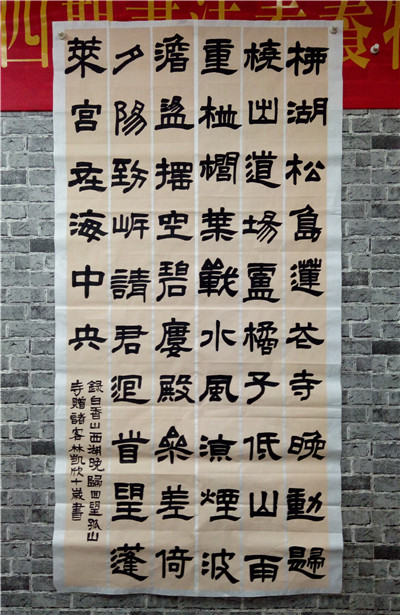 四期書法素養
柳湖松島蓮花寺晚動歸
橈出道場盧橘子低山雨
重栟櫚葉戰水風涼煙波
澹盪搖空碧樓殿參差倚
夕陽到岸請君迴首望蓬
萊宮在海中央
錄白香山西湖晚歸回望孤山
寺贈諸客林凱欣十歲書